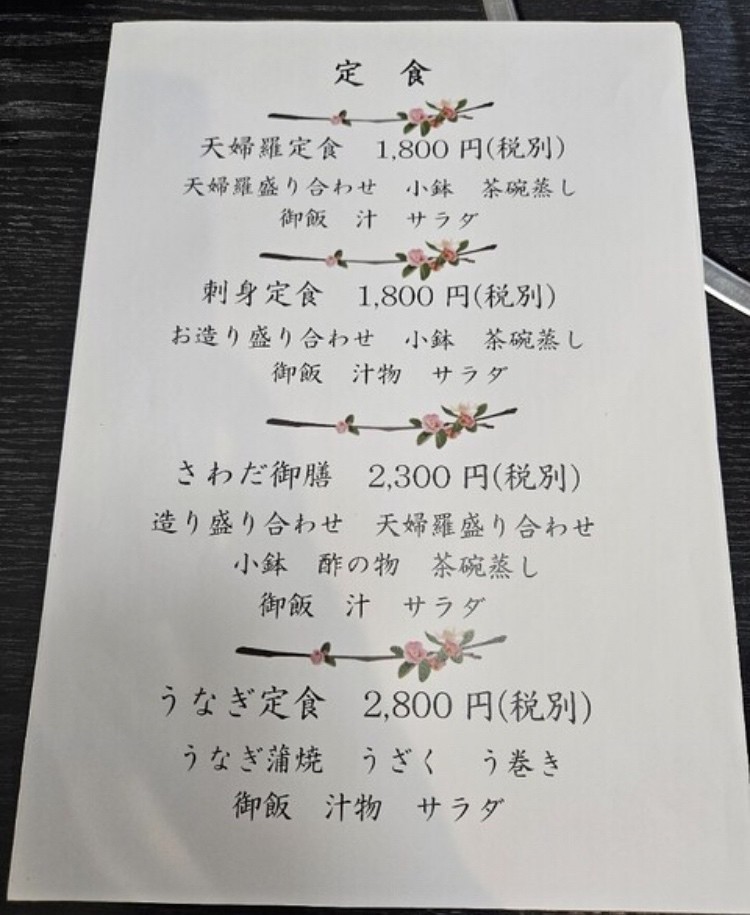 定　食
天婦羅定食　1,800 円(税別)
天婦羅盛り合わせ　小鉢　茶碗蒸し
御飯　汁　サラダ
刺身定食　1,800 円(税別)
お造り盛り合わせ　小鉢　茶碗蒸し
御飯　汁物　サラダ
さわだ御膳　2,300 円(税別)
造り盛り合わせ　天婦羅盛り合わせ
小鉢　酢の物　茶碗蒸し
御飯　汁　サラダ
うなぎ定食　2,800 円(税別)
うなぎ蒲焼　うざく　う巻き
御飯　汁物　サラダ